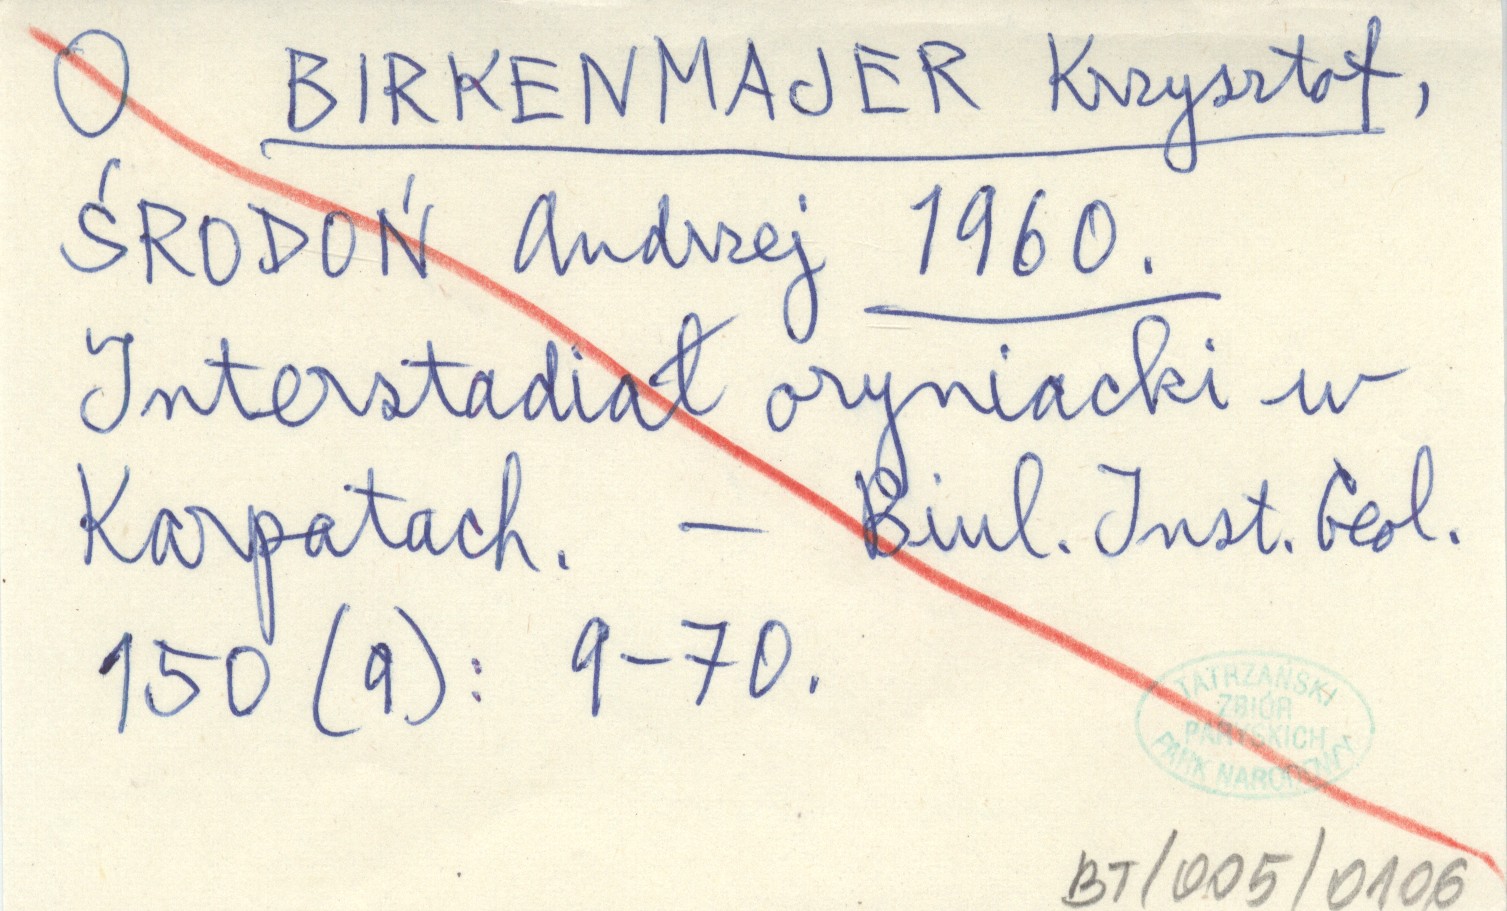 O BIRKENMAJER Krzysztof,
ŚRODOŃ Andrzej 1960.
Interstadiał oryniacki w
Karpatach. — Biul. Inst. Geol.
150 (9): 9-70.
TATRZAŃSKI
ZBIÓR
PARYSKICH
PARK NARODOWY
BT/005/0106